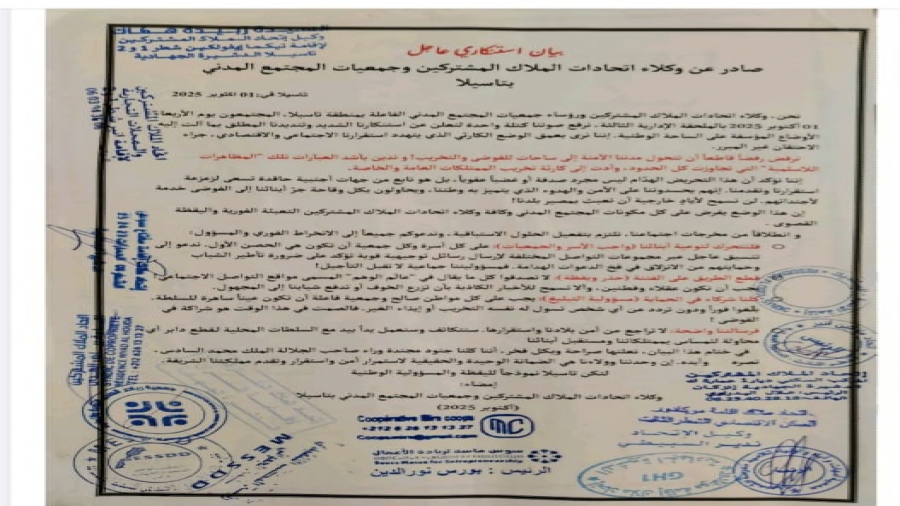 بيان استنكاري عاجل
صادر عن وكلاء اتحادات الملاك المشتركين وجمعيات المجتمع المدني
بتاسيلا
تاسيلا في: 01 أكتوبر 2025
نحن، وكلاء اتحادات الملاك المشتركين ورؤساء جمعيات المجتمع المدني الفاعلة بمنطقة تاسيلا، المجتمعون يوم الأربعاء
01 أكتوبر 2025 بالملحقة الإدارية الثالثة، نرفع صوتنا ككتلة واحدة لنعلن عن استنكارنا الشديد وتنديدنا المطلق بما آلت إليه
الأوضاع المؤسفة على الساحة الوطنية. إننا نرى بعمق الوضع الكارثي الذي يتهدد استقرارنا الاجتماعي والاقتصادي، جراء
الاحتقان غير المبرر.
نرفض رفضاً قاطعاً أن تتحول مدننا الآمنة إلى ساحات للفوضى والتخريب! و ندين بأشد العبارات تلك "المظاهرات
اللاسلمية" التي تجاوزت كل الحدود، وأدت إلى كارثة تخريب الممتلكات العامة والخاصة.
إننا نؤكد أن هذا التحريض الهدام ليس مجرد صدفة أو غضباً عفوياً، بل هو نابع من جهات أجنبية حاقدة تسعى لزعزعة
استقرارنا وتقدمنا. إنهم يحسدوننا على الأمن والهدوء الذي يتميز به وطننا، ويحاولون بكل وقاحة جرّ أبنائنا إلى الفوضى خدمة
لأجنداتهم. لن نسمح لأيادٍ خارجية أن تعبث بمصير بلدنا!
إن هذا الوضع يفرض على كل مكونات المجتمع المدني وكافة وكلاء اتحادات الملاك المشتركين التعبئة الفورية واليقظة
القصوى.
و انطلاقاً من مخرجات اجتماعنا، نلتزم بتفعيل الحلول الاستباقية، وندعوكم جميعاً إلى الانخراط الفوري والمسؤول:
فلنتحرك لتوعية أبنائنا (واجب الأسر والجمعيات): على كل أسرة وكل جمعية أن تكون هي الحصن الأول. ندعو إلى
تنسيق عاجل عبر مجموعات التواصل المختلفة لإرسال رسائل توجيهية قوية تؤكد على ضرورة تأطير الشباب
وحمايتهم من الانزلاق في فخ الدعوات الهدامة. فمسؤوليتنا جماعية لا تقبل التأجيل!
قطع الطريق على الفتنة (حذر ويقظة): لا تصدقوا كل ما يقال في "عالم الوهم" المسمى مواقع التواصل الاجتماعي.
يجب أن نكون عقلاء وفطنين، وألا نسمح للأخبار الكاذبة بأن تزرع الخوف أو تدفع شبابنا إلى المجهول.
كلنا شركاء في الحماية (مسؤولية التبليغ): يجب على كل مواطن صالح وجمعية فاعلة أن تكون عيناً ساهرة للسلطة.
بلغوا فوراً ودون تردد عن أي شخص تسول له نفسه التخريب أو إيذاء الغير. فالصمت في هذا الوقت هو شراكة في
الفوضى!
فرسالتنا واضحة: لا تراجع عن أمن بلادنا واستقرارها. سنتكاتف وسنعمل يداً بيد مع السلطات المحلية لقطع دابر أي
محاولة للمساس بممتلكاتنا ومستقبل أبنائنا
في ختام هذا البيان، نعلنها صراحة وبكل فخر: أننا كلنا جنود مجندة وراء صاحب الجلالة الملك محمد السادس،
وأيده. إن وحدتنا وولاءنا هي القوة الوحيدة والحقيقية لاستمرار أمن واستقرار وتقدم مملكتنا الشريفة.
لتكن تاسيلا نموذجاً لليقظة والمسؤولية الوطنية
إمضاء:
وكلاء اتحادات الملاك المشتركين وجمعيات المجتمع المدني بتاسيلا
(أكتوبر 2025)
+212 6 26 13 13 27
MC
سوس ماسة لريادة الأعمال
Souss Massa for Entrepreneurship
الرئيس : بورس نور الدين
MESSDD
GH1